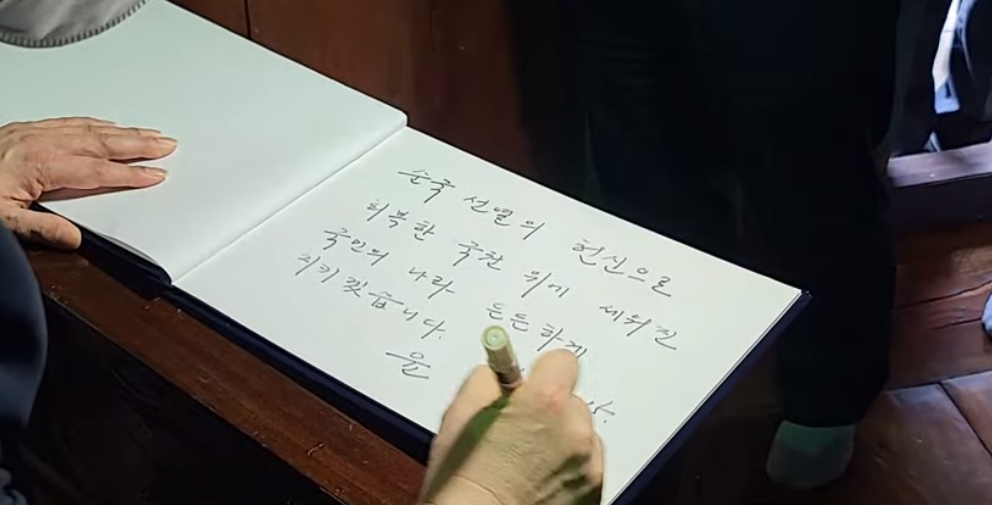 순국 선열의 헌신으로
회복한 국권 위에 세워진
국민의 나라 든든하게
지키겠습니다.
윤